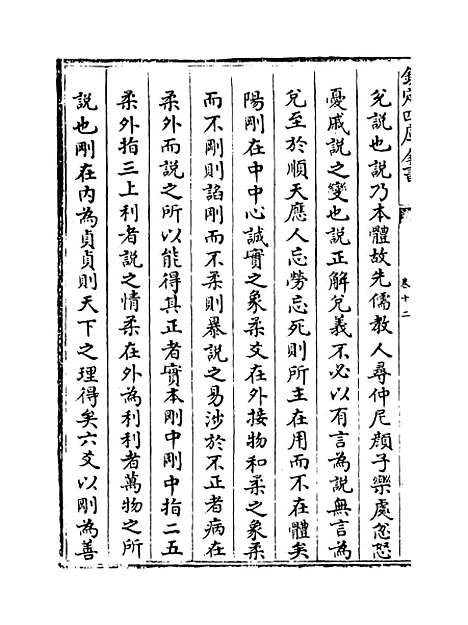 欽定四庫全書
卷十二
兌說也說乃本體故先儒教人尋仲尼顔子樂處忿怒
憂戚說之變也說正解兌義不必以有言為說無言為
兌至於順天應人忘勞忘死則所主在用而不在體矣
陽剛在中中心誠實之象柔爻在外接物和柔之象柔
而不剛則諂剛而不柔則暴說之易涉於不正者病在
柔外而說之所以能得其正者實本剛中剛中指二五
柔外指三上利者說之情柔在外為利利者萬物之所
說也剛在內為貞貞則天下之理得矣六爻以剛為善